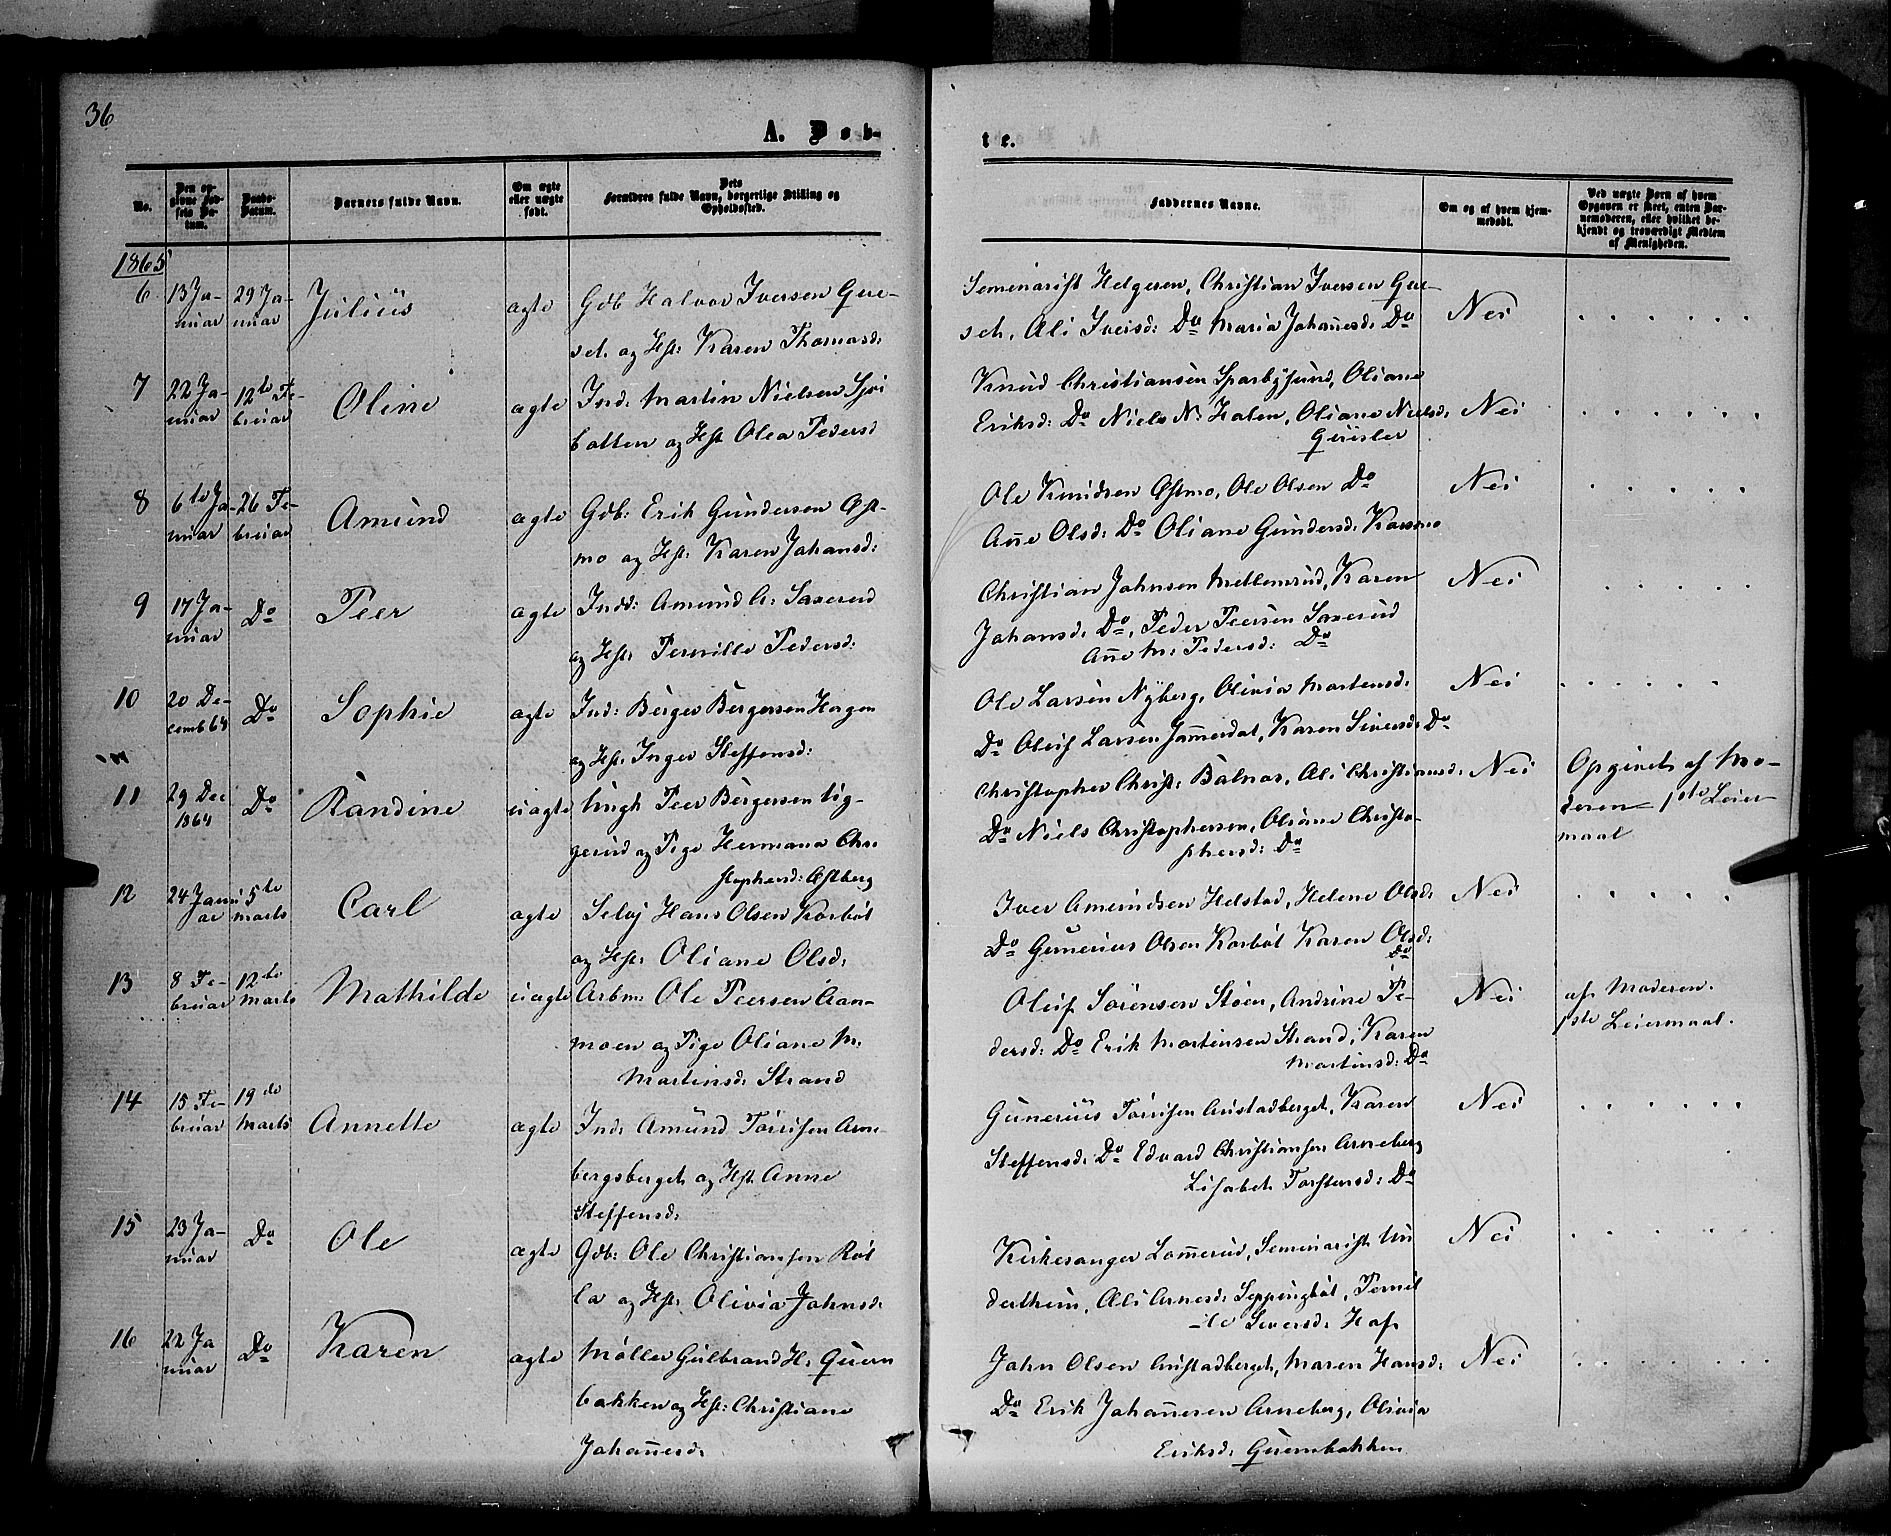 36
A. Døb-
te.
No.
Den op-
givne Fød-
sels Da-
tum.
Daabs-
Datum.
Barnets fulde Navn.
Om ægte
eller uægte
født.
Dets
Forældres fulde Navn, borgerlige Stilling og
Opholdssted.
Faddernes Navne.
Om og af hvem hjem-
medøbt.
Ved uægte Børn af hvem
Opgaven er skeet, enten Bar-
nemoderen, eller hvilket be-
kjendt og troværdigt Medlem
af Menigheden.
1865
6 13 Ja-
nuar 29 Ja-
nuar Julius ægte Gdb Halvor Iversen Gre-
set. og Hst: Karen Thomasd:
Seminarist Helgesen, Christian Iversen Gre-
set, Ali Iversd: Do Maria Johannesd. Do Nei
7 22 Ja-
nuar 12te Fe-
bruar Oline ægte Ind: Martin Nielsen Sjøi
botten og Hst Olea Pedersd
Knud Christiansen Sparbysund, Oliane
Eriksd: Do Niels N. Halen, Oliane Nielsd:
Nei
8 6te Ja-
nuar 26 Fe-
bruar Amund ægte Gdb: Erik Gundersen Øst-
mo og Hst: Karen Johansd:
Ole Knudsen Østmo, Ole Olsen Do
Anne Olsd: Do Oliane Gundersd: Karsmo
Nei
9 17 Ja-
nuar Do Peer ægte Indd: Amund A. Saxerud
og Hst: Pernille Pedersd:
Christian Johnsen Mellemrud, Karen
Johansd: Do, Peder Peersen Saxerud
Anne M. Pedersd: Do
Nei
10 20 De-
cemb 64 Do Sophie ægte Ind: Berger Bergersen Hagen
og Hst: Inger Steffensd:
Ole Larsen Nyberg, Olivia Mortensd:
Do Oluf Larsen Jammerdal, Karen Siversd: Do
Nei
11 29 Dec
1864 Do Randine uægte Ungk Peer Bergersen Ug-
gerud og Pige Hermana Chri
stophersd: Østberg
Christopher Christ: Balnas, Ali Christiansd:
Do Niels Christophersen, Oliane Christo-
phersd: Do
Nei Opgivet af Mo-
deren 1ste Leier-
maal
12 24 Janu
ar 5te
Marts Carl ægte Selvj Hans Olsen Korbøl
og Hst: Oliane Olsd:
Iver Amundsen Helstad, Helene Olsd:
Do Gunerius Olsen Korbøl Karen Olsd:
Do
Nei
13 8 Fe-
bruar 12te
Marts Mathilde uægte Arbm: Ole Peersen Aan-
moen og Pige Oliane M.
Martinsd: Strand
Oluf Sørensen Støen, Andrine Pe-
dersd: Do Erik Martinsen Strand, Karen
Martinsd: Do
Nei af Moderen.
1ste Leiermaal.
14 15 Fe-
bruar 19de
Marts Annette ægte Ind: Amund Torrisen Arne-
bergsberget og Hst. Anne
Steffensd:
Gunerius Torrisen Austadberget, Karen
Steffensd: Do Edvard Christiansen Arneberg
Lisabet Torstensd: Do
Nei
15 23 Ja-
nuar Do Ole ægte Gdb: Ole Christiansen Røt
la og Hst: Olivia Johnsd:
Kirkesanger Lammerud, Seminarist Un
dertheim, Ali Arnesd: Seppingbøl, Pernil
-le Siversd: Hof
Nei
16 22 Ja
nuar Do Karen ægte Møller Gulbrand H. Quern
bakken og Hst: Christiane
Johannesd:
John Olsen Austadberget, Maren Hansd:
Do Erik Johannesen Arneberg, Olivia
Eriksd: Quernbakken
Nei